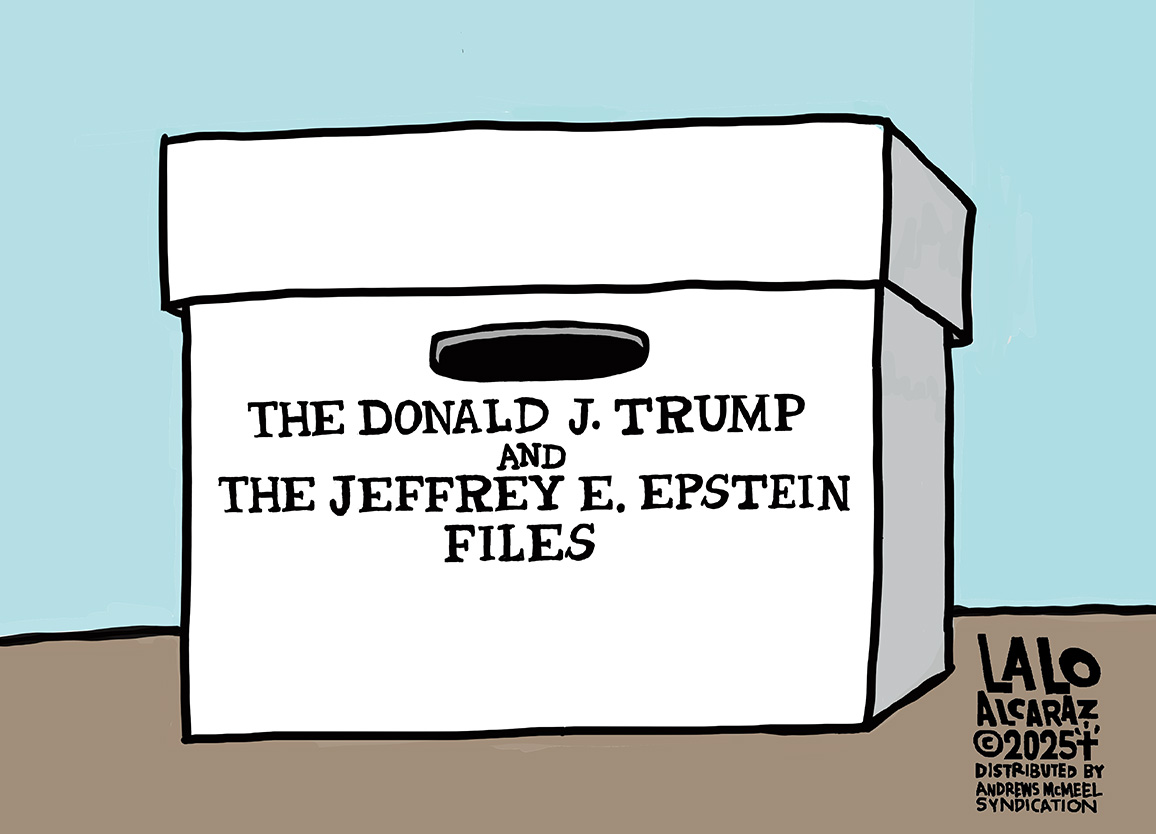 THE DONALD J. TRUMP
AND
THE JEFFREY E. EPSTEIN
FILES
LALO
ALCARAZ
©2025
DISTRIBUTED BY
ANDREWS MCMEEL
SYNDICATION